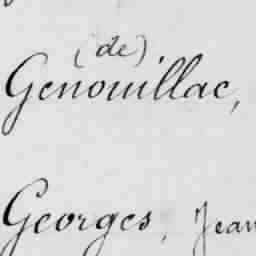 (de)
Genouillac,
Georges, Jean